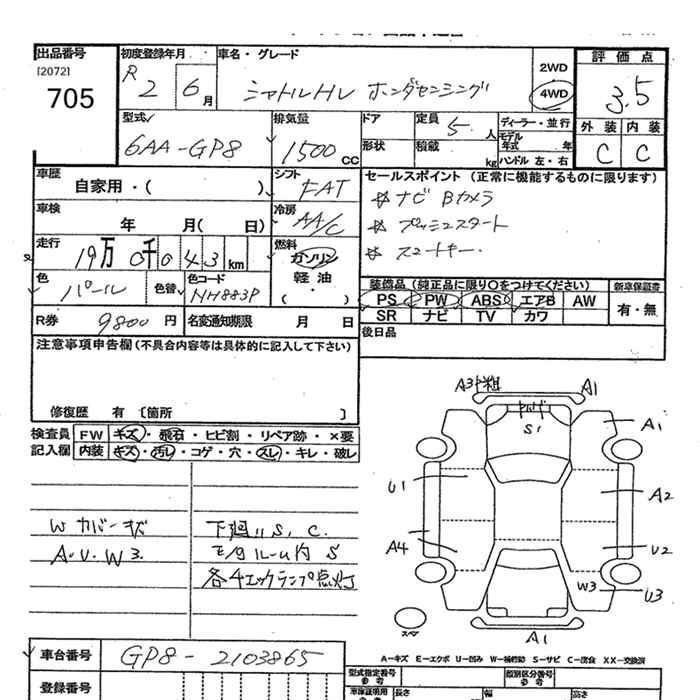 出品番号
[2072]
705
初度登録年月
R 2 6 月
車名・グレード
シャトルHV ホンダセンシング
2WD
4WD
評価点
3.5
外装 内装
C C
型式
6AA-GP8
排気量
1500 CC
ドア
形状
定員 5 人
積載 kg
ディーラー・並行
モデル年式 年
ハンドル 左・右
車歴
自家用・( )
シフト
FAT
セールスポイント(正常に機能するものに限ります)
ナビ Bカメラ
プッシュスタート
スマートキー
車検 年 月( 日)
冷房
AA/C
走行
19万0千043km
燃料
ガソリン
軽油
・( )
色
パール
色替
色コード
NH883P
装備品(純正品に限り○をつけてください)
PS PW ABS エアB AW
SR ナビ TV カワ
新車保証書
有・無
R券 9800 円
名変通知期限 月 日
後日品
注意事項申告欄(不具合内容等は具体的に記入して下さい)
修復歴 有 〔箇所 〕
検査員記入欄
FW キズ・飛石・ヒビ割・リペア跡・×要
内装 キズ・汚レ・コゲ・穴・スレ・キレ・破レ
W カバーキズ
A・U・W3.
下廻リS, C.
各4エックランプ点灯
A3
A1
S1
A1
U1
A2
A4
U2
W3
U3
スペア
A1
A−キズ E−エクボ U−凹み W−補修跡 S−サビ C−腐食 XX−交換済
車台番号
GP8-2103865
登録番号
型式指定番号
参考
類別区分番号
参考
車検証明用
長さ
幅
高さ